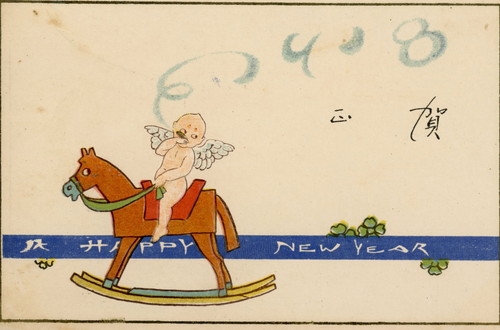 賀 正
A HAPPY NEW YEAR